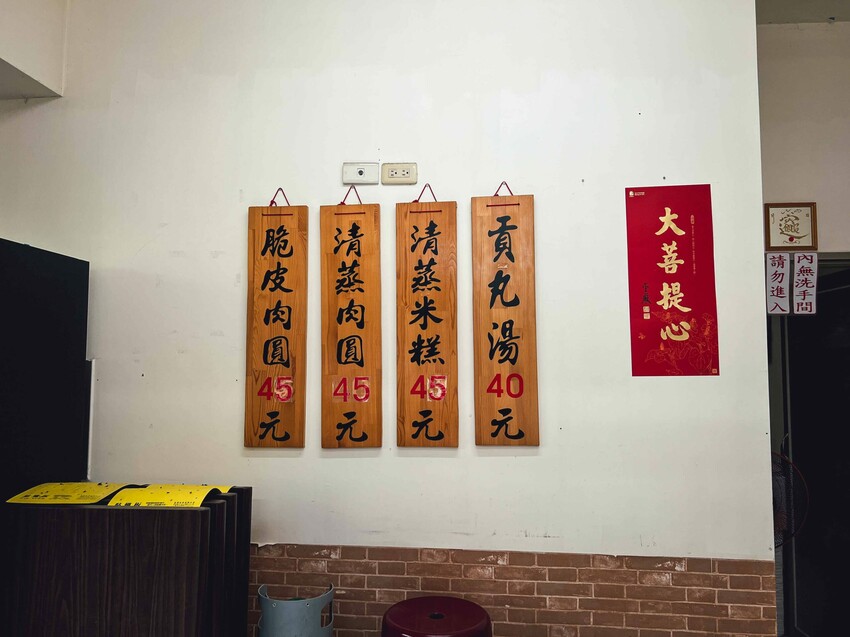 脆皮肉圓45元
清蒸肉圓45元
清蒸米糕45元
貢丸湯40元
大菩提心
內無洗手間
請勿進入